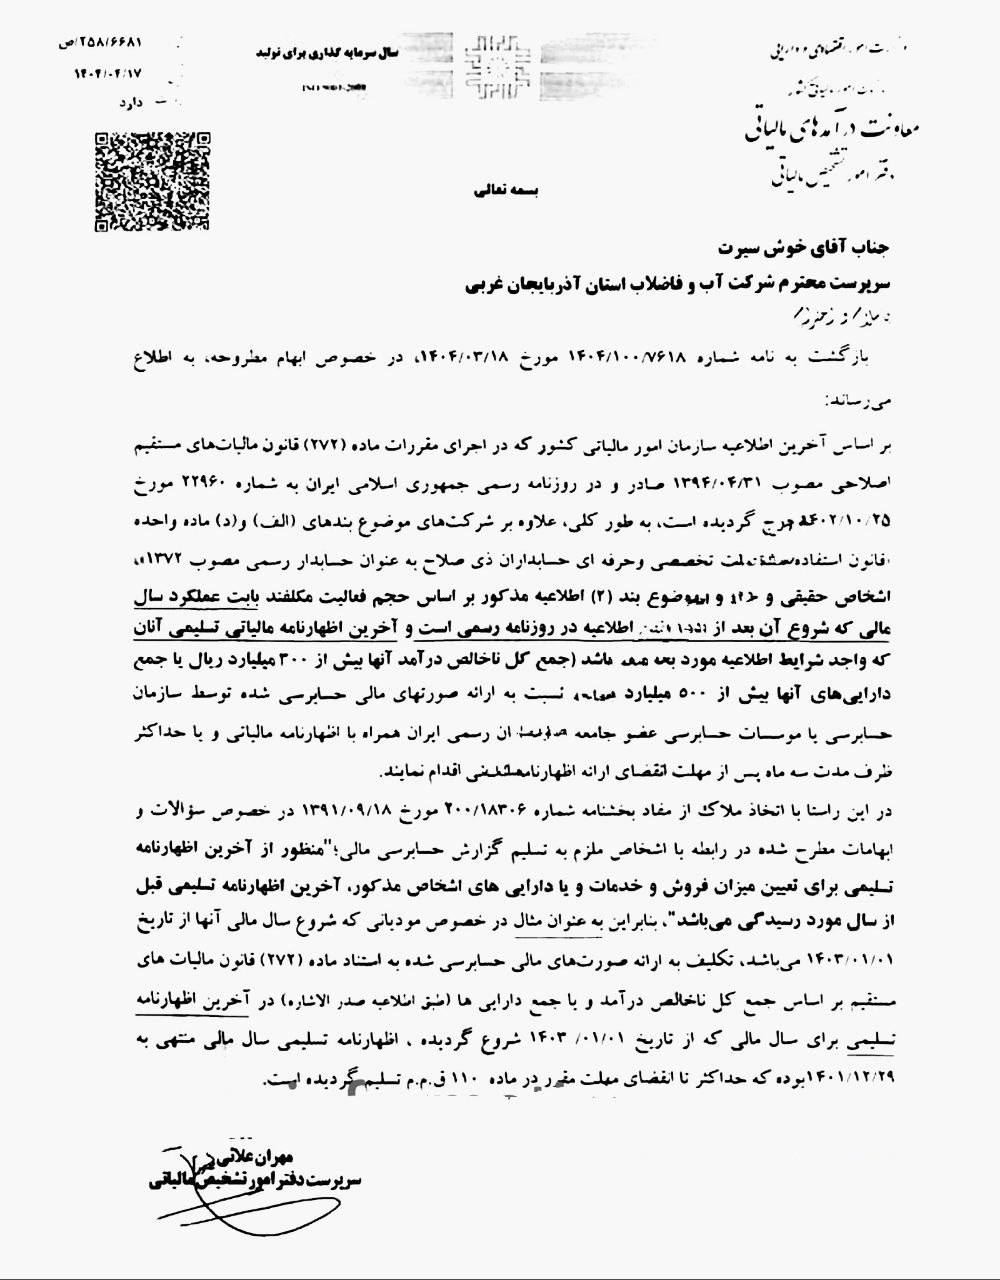 ۲۵۸/۶۶۸۱/ص
۱۴۰۴/۰۴/۱۷
دارد
سال سرمایه گذاری برای تولید
ISO 9001-2008
معاونت درآمدهای مالیاتی
دفتر امور تشخیص مالیاتی
بسمه تعالی
جناب آقای خوش سیرت
سرپرست محترم شرکت آب و فاضلاب استان آذربایجان غربی
بازگشت به نامه شماره ۱۴۰۴/۱۰۰/۷۶۱۸ مورخ ۱۴۰۴/۰۳/۱۸، در خصوص ابهام مطروحه، به اطلاع
می‌رساند:
بر اساس آخرین اطلاعیه سازمان امور مالیاتی کشور که در اجرای مقررات ماده (۲۷۲) قانون مالیات‌های مستقیم
اصلاحی مصوب ۱۳۹۴/۰۴/۳۱ صادر و در روزنامه رسمی جمهوری اسلامی ایران به شماره ۲۲۹۶۰ مورخ
۱۴۰۲/۱۰/۲۵ درج گردیده است، به طور کلی، علاوه بر شرکت‌های موضوع بندهای (الف) و(د) ماده واحده
قانون استفاده تخصصی وحرفه ای حسابداران ذی صلاح به عنوان حسابدار رسمی مصوب ۱۳۷۲»،
اشخاص حقیقی و موضوع بند (۲) اطلاعیه مذکور بر اساس حجم فعالیت مکلفند بابت عملکرد سال
مالی که شروع آن بعد از اطلاعیه در روزنامه رسمی است و آخرین اظهارنامه مالیاتی تسلیمی آنان
که واجد شرایط اطلاعیه مورد باشد (جمع کل ناخالص درآمد آنها بیش از ۳۰۰ میلیارد ریال یا جمع
دارایی‌های آنها بیش از ۵۰۰ میلیارد نسبت به ارائه صورتهای مالی حسابرسی شده توسط سازمان
حسابرسی یا موسسات حسابرسی عضو جامعه رسمی ایران همراه با اظهارنامه مالیاتی و یا حداکثر
ظرف مدت سه ماه پس از مهلت انقضای ارائه اظهارنامه اقدام نمایند.
در این راستا با اتخاذ ملاک از مفاد بخشنامه شماره ۲۰۰/۱۸۳۰۶ مورخ ۱۳۹۱/۰۹/۱۸ در خصوص سؤالات و
ابهامات مطرح شده در رابطه با اشخاص ملزم به تسلیم گزارش حسابرسی مالی؛"منظور از آخرین اظهارنامه
تسلیمی برای تعیین میزان فروش و خدمات و یا دارایی های اشخاص مذکور، آخرین اظهارنامه تسلیمی قبل
از سال مورد رسیدگی می‌باشد"، بنابراین به عنوان مثال در خصوص مودیانی که شروع سال مالی آنها از تاریخ
۱۴۰۳/۰۱/۰۱ می‌باشد، تکلیف به ارائه صورت‌های مالی حسابرسی شده به استناد ماده (۲۷۲) قانون مالیات های
مستقیم بر اساس جمع کل ناخالص درآمد و یا جمع دارایی ها (طبق اطلاعیه صدر الاشاره) در آخرین اظهارنامه
تسلیمی برای سال مالی که از تاریخ ۱۴۰۳/۰۱/۰۱ شروع گردیده ، اظهارنامه تسلیمی سال مالی منتهی به
۱۴۰۱/۱۲/۲۹بوده که حداکثر تا انقضای مهلت مقرر در ماده ۱۱۰ ق.م.م تسلیم گردیده است.
مهران علائی
سرپرست دفتر امور تشخیص مالیاتی